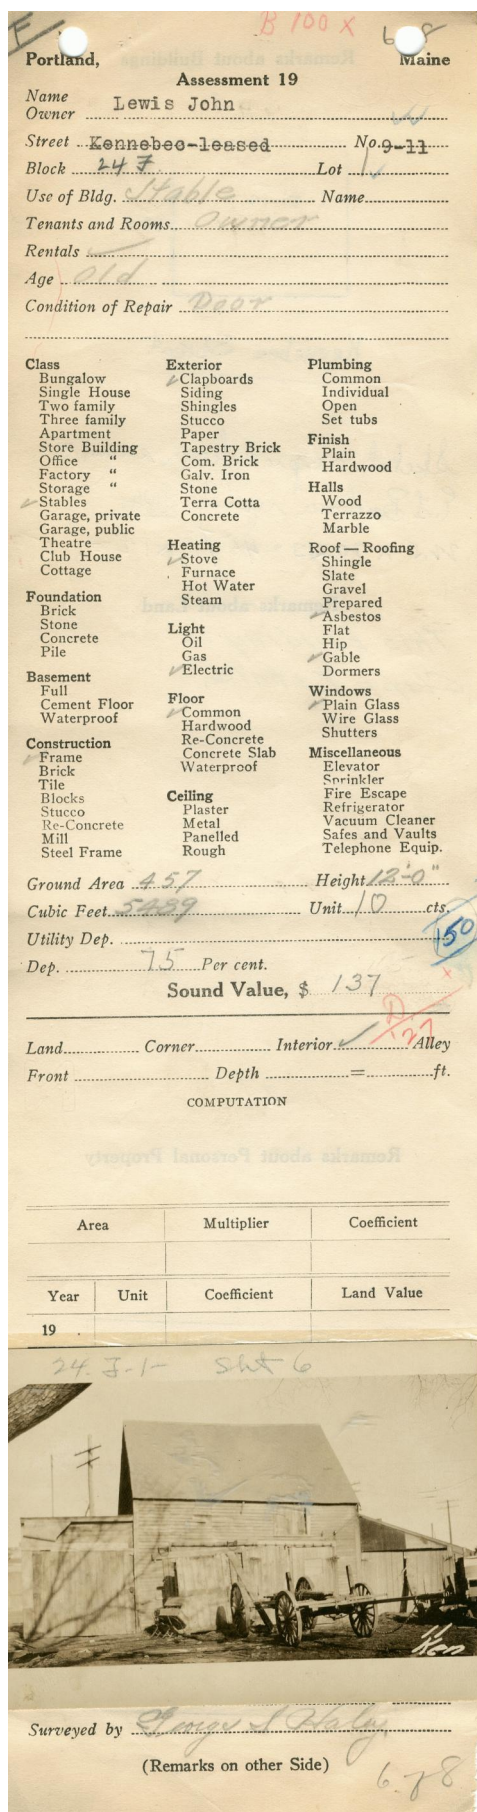 F B 100 X 6-8
Portland, Maine
Assessment 19
Name
Owner Lewis John
Street Kennebec-leased No. 9-11
Block 24 F Lot 1
Use of Bldg. Stable Name
Tenants and Rooms Owner
Rentals
Age Old
Condition of Repair Poor
Class
Bungalow
Single House
Two family
Three family
Apartment
Store Building
Office "
Factory "
Storage "
✓ Stables
Garage, private
Garage, public
Theatre
Club House
Cottage
Foundation
Brick
Stone
Concrete
Pile
Basement
Full
Cement Floor
Waterproof
Construction
✓ Frame
Brick
Tile
Blocks
Stucco
Re-Concrete
Mill
Steel Frame
Exterior
✓ Clapboards
Siding
Shingles
Stucco
Paper
Tapestry Brick
Com. Brick
Galv. Iron
Stone
Terra Cotta
Concrete
Heating
✓ Stove
Furnace
Hot Water
Steam
Light
Oil
Gas
✓ Electric
Floor
✓ Common
Hardwood
Re-Concrete
Concrete Slab
Waterproof
Ceiling
Plaster
Metal
Panelled
Rough
Plumbing
Common
Individual
Open
Set tubs
Finish
Plain
Hardwood
Halls
Wood
Terrazzo
Marble
Roof — Roofing
Shingle
Slate
Gravel
Prepared
✓ Asbestos
Flat
Hip
✓ Gable
Dormers
Windows
✓ Plain Glass
Wire Glass
Shutters
Miscellaneous
Elevator
Sprinkler
Fire Escape
Refrigerator
Vacuum Cleaner
Safes and Vaults
Telephone Equip.
Ground Area 457 Height 12'-0"
Cubic Feet 5489 Unit 10 cts.
Utility Dep. 150
Dep. 75 Per cent.
Sound Value, $ 137
D/27
Land Corner Interior ✓ Alley
Front Depth = ft.
COMPUTATION
Area Multiplier Coefficient
Year Unit Coefficient Land Value
19
24-F-1- Sht 6
11
Ken
Surveyed by George S Haley
(Remarks on other Side)
6-8